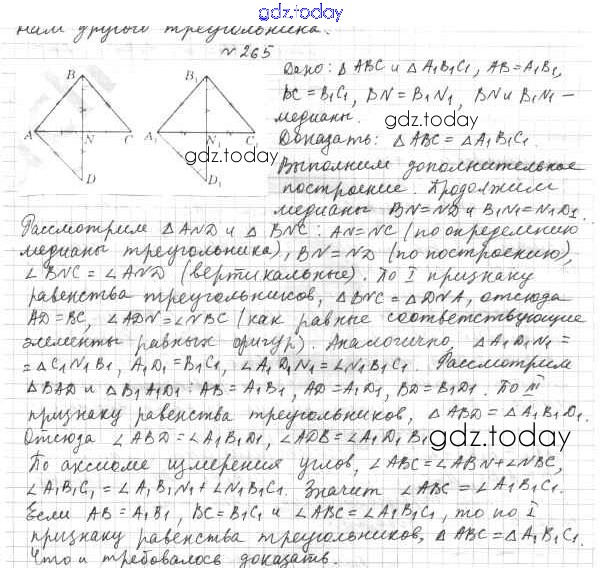 gdz.today
ним другого треугольника.
№265
Дано: △ABC и △A₁B₁C₁, AB=A₁B₁,
BC=B₁C₁, BN=B₁N₁, BN и B₁N₁ –
медианы.
Доказать: △ABC=△A₁B₁C₁.
Выполним дополнительное
построение. Продолжим
медианы BN=ND и B₁N₁=N₁D₁.
B B₁
A N C A₁ N₁ C₁
D D₁
gdz.today
gdz.today
Рассмотрим △AND и △BNC: AN=NC (по определению
медианы треугольника), BN=ND (по построению),
∠BNC=∠AND (вертикальные). По I признаку
равенства треугольников, △BNC=△DNA, отсюда
AD=BC, ∠ADN=∠NBC (как равные соответствующие
элементы равных фигур). Аналогично, △A₁D₁N₁=
=△C₁N₁B₁, A₁D₁=B₁C₁, ∠A₁D₁N₁=∠N₁B₁C₁. Рассмотрим
△BAD и △B₁A₁D₁: AB=A₁B₁, AD=A₁D₁, BD=B₁D₁. По III
признаку равенства треугольников, △ABD=△A₁B₁D₁.
Отсюда ∠ABD=∠A₁B₁D₁, ∠ADB=∠A₁D₁B₁
gdz.today
По аксиоме измерения углов, ∠ABC=∠ABN+∠NBC,
∠A₁B₁C₁=∠A₁B₁N₁+∠N₁B₁C₁. Значит ∠ABC=∠A₁B₁C₁.
Если AB=A₁B₁, BC=B₁C₁ и ∠ABC=∠A₁B₁C₁, то по I
признаку равенства треугольников, △ABC=△A₁B₁C₁.
Что и требовалось доказать.